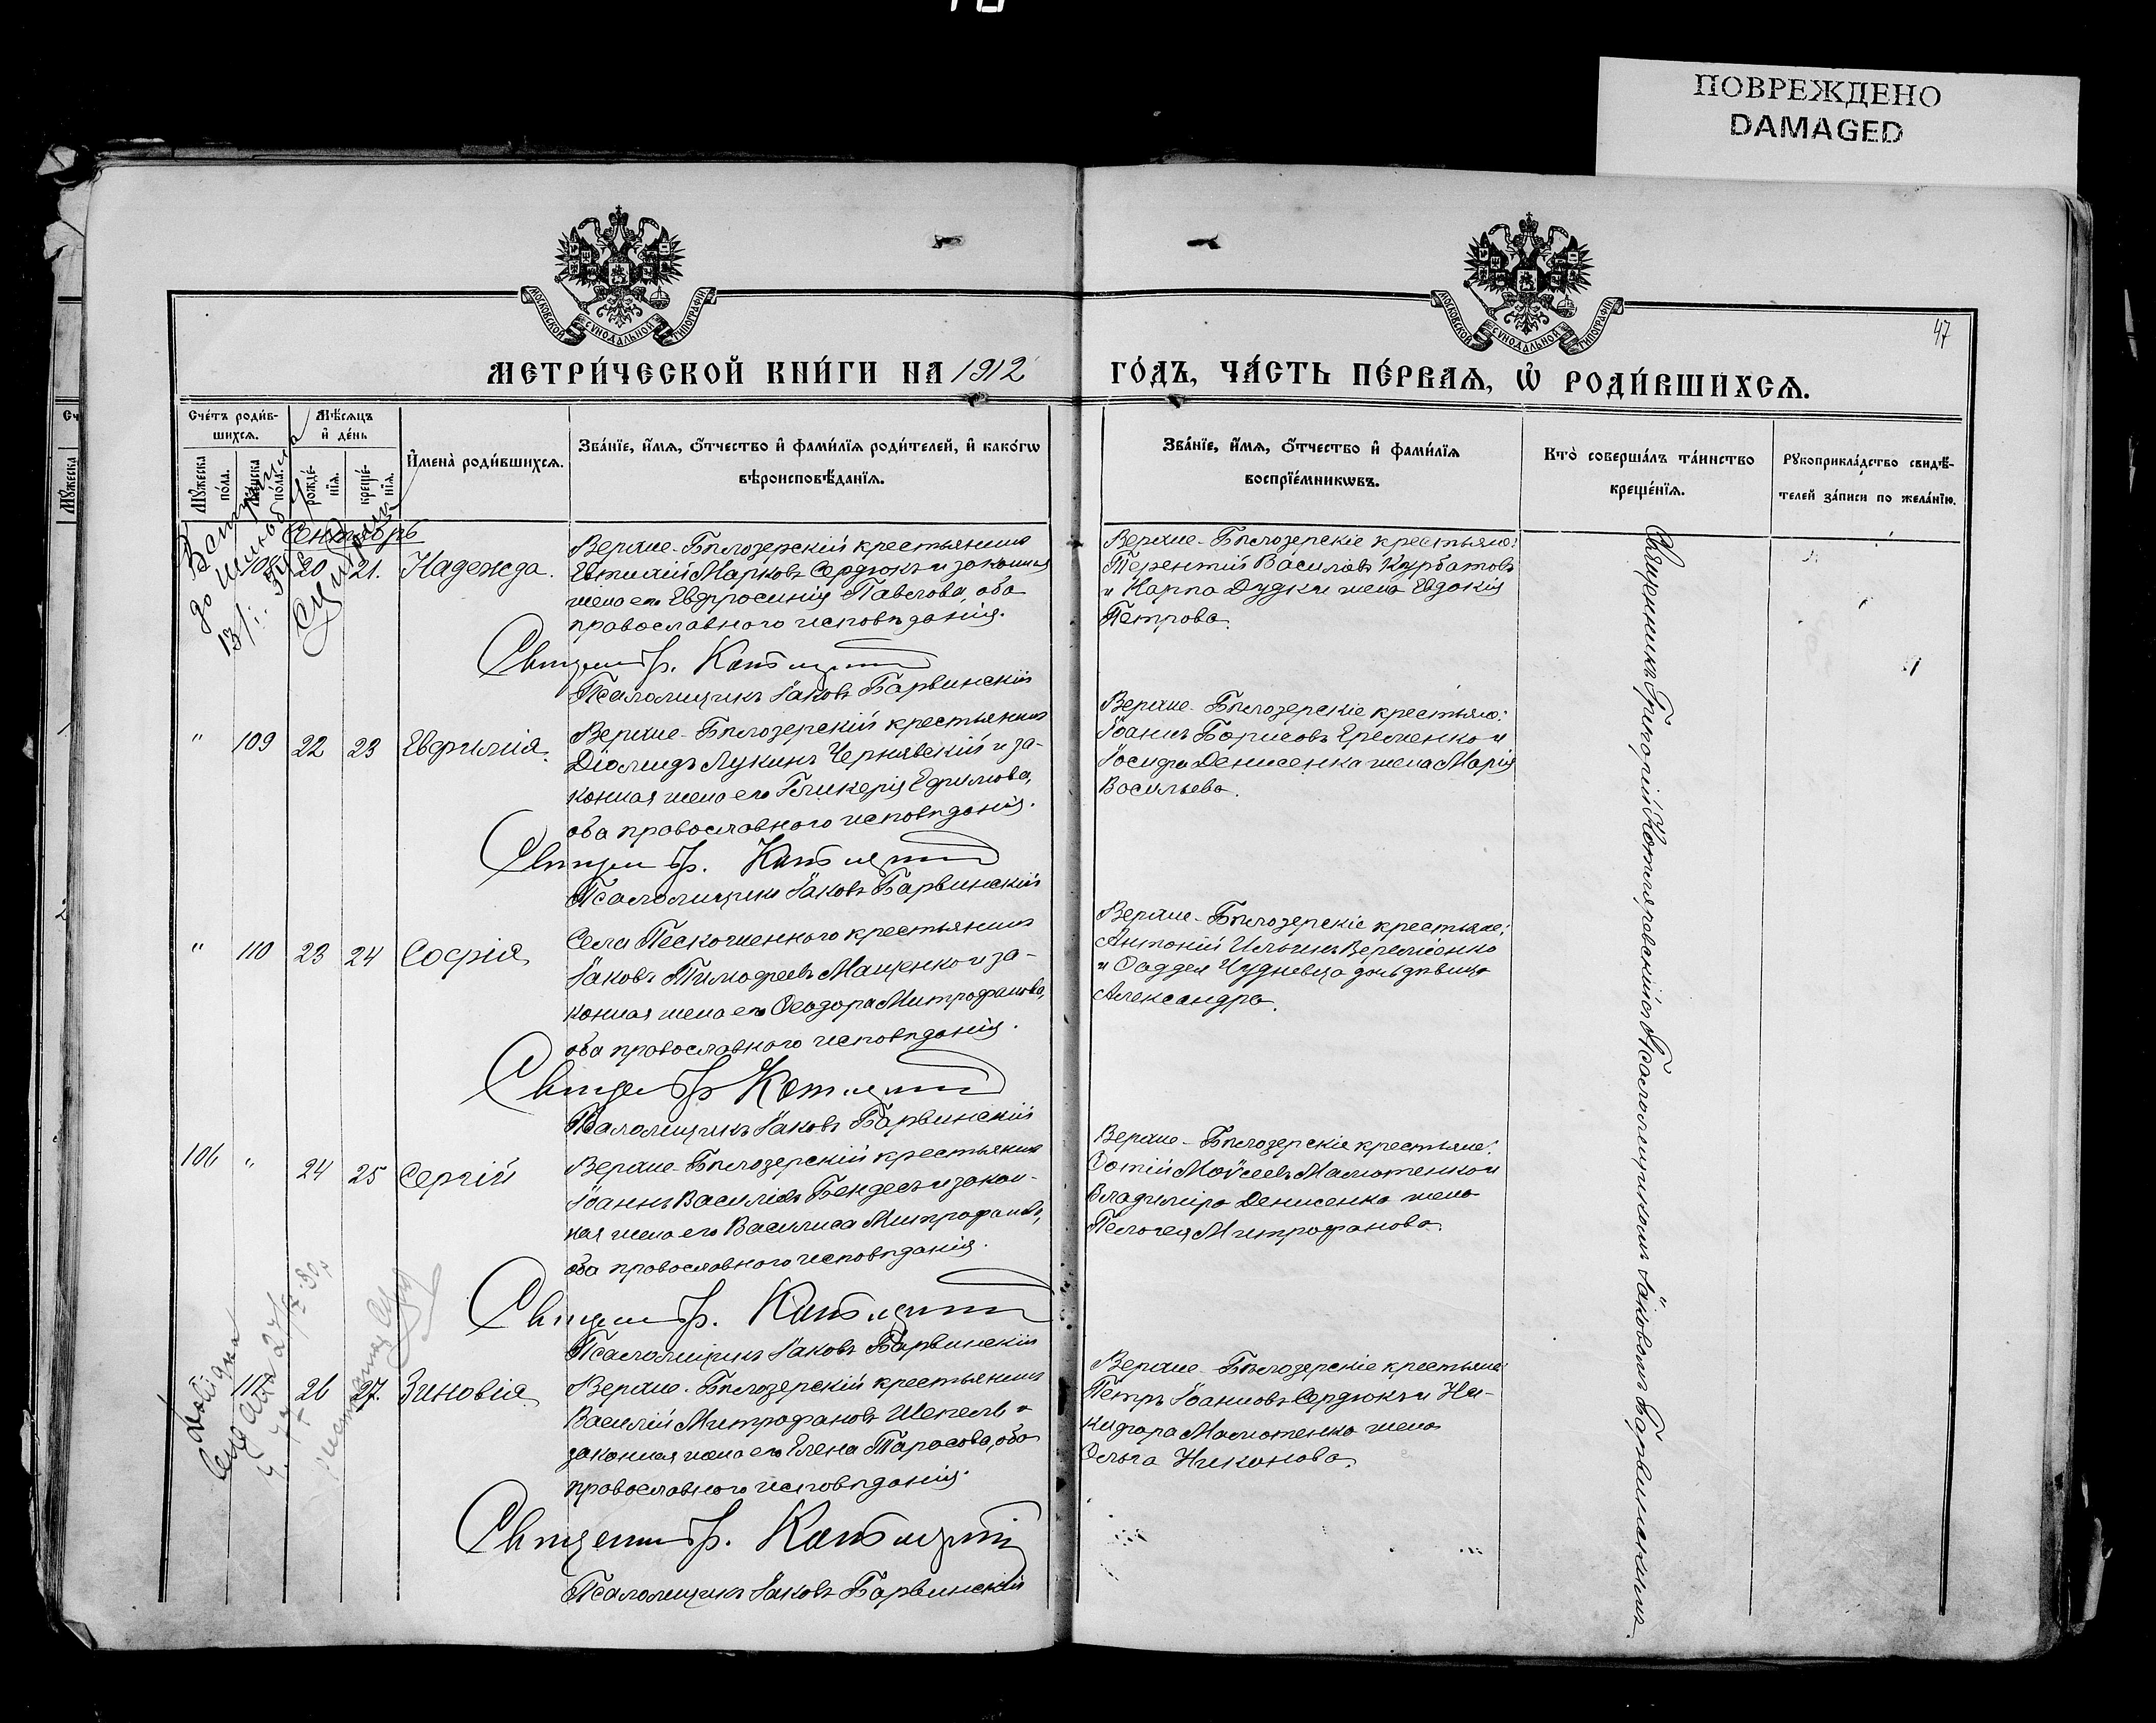 ПОВРЕЖДЕНО
DAMAGED
МОСКОВСКОЙ СѴНОДАЛЬНОЙ ТИПОГРАФІИ
МОСКОВСКОЙ СѴНОДАЛЬНОЙ ТИПОГРАФІИ
47
МЕТРИ́ЧЕСКОЙ КНИ́ГИ НА 1912
ГО́ДЪ, ЧА́СТЬ ПЕ́РВАѦ, Ѡ҆ РОДИ́ВШИХСѦ.
Сче́тъ роди́в-
шихсѧ.
Мꙋ́жеска
по́ла.
по́ла.
Мѣ́сѧцъ
и҆ де́нь
рожде́-
нїѧ.
креще́-
нїѧ.
И҆мена̀ роди́вшихсѧ.
Зва́нїе, и҆́мѧ, ѻ҆́тчество и҆ фами́лїѧ роди́телей, и҆ како́гѡ
вѣроисповѣ́данїѧ.
Зва́нїе, и҆́мѧ, ѻ҆́тчество и҆ фами́лїѧ
воспрїе́мникѡвъ.
Кто̀ соверша́лъ та́инство
креще́нїѧ.
Рꙋкоприкла́дство свидѣ́-
телей за́писи по жела́нїю.
Сентябрь
108 20 21. Надежда.
Верхне-Бѣлозерскій крестьянинъ
Евтихій Марковъ Сердюкъ и законная
жена его Евфросинія Павлова, оба
православнаго исповѣданія.
Псаломщикъ Іаковъ Барвинскій
Верхне-Бѣлозерскіе крестьяне:
Терентій Василіевъ Курбатовъ
и Карпа Дудки жена Евдокія
Петрова.
" 109 22 23 Евфимія.
Верхне-Бѣлозерскій крестьянинъ
Діомидъ Лукинъ Чернявскій и за-
конная жена его Гликерія Ефимова,
оба православнаго исповѣданія.
Псаломщикъ Іаковъ Барвинскій
Верхне-Бѣлозерскіе крестьяне:
Іоаннъ Борисовъ Еременко и
Іосифа Денисенка жена Марія
Васильева.
" 110 23 24 Софія
Села Пескошеннаго крестьянинъ
Іаковъ Тимофеевъ Мащенко и за-
конная жена его Феодора Митрофанова,
оба православнаго исповѣданія.
Псаломщикъ Іаковъ Барвинскій
Верхне-Бѣлозерскіе крестьяне:
Антоній Ильинъ Веремеенко
и Фаддея Чудневца дочь дѣвица
Александра.
106 " 24 25 Сергій
Верхне-Бѣлозерскій крестьянинъ
Іоаннъ Василіевъ Бендесъ и закон-
ная жена его Василиса Митрофанова,
оба православнаго исповѣданія.
Псаломщикъ Іаковъ Барвинскій
Верхне-Бѣлозерскіе крестьяне:
Фотій Моѵсеевъ Малютенко и
Владиміра Денисенка жена
Пелагея Митрофанова.
111 26 27. Зиновія
Верхне-Бѣлозерскій крестьянинъ
Василій Митрофановъ Шепель и
законная жена его Елена Тарасова, оба
православнаго исповѣданія.
Псаломщикъ Іаковъ Барвинскій
Верхне-Бѣлозерскіе крестьяне:
Петръ Іоанновъ Сердюкъ и Ни-
кифора Малютенка жена
Ольга Никонова.
Священникъ Григорій съ Псаломщикомъ Іаковомъ Барвинскимъ.